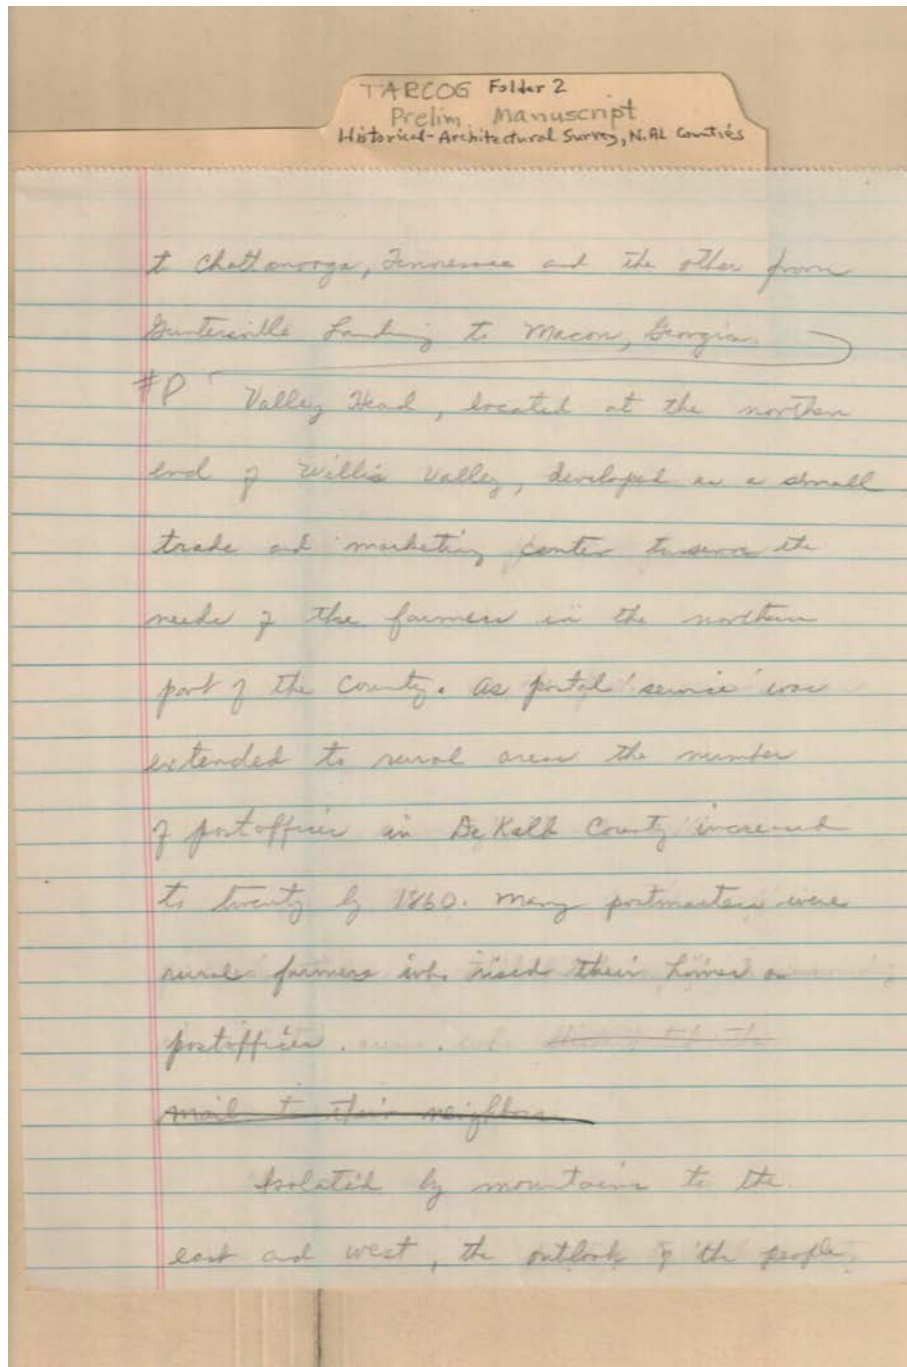 TARCOG Folder 2
Prelim. Manuscript
Historical-Architectural Survey, N. AL Counties
t Chattanooga, Tennessee and the other from
Guntersville Landing to Macon, Georgia.
#P Valley Head, located at the northern
end of Willis Valley, developed as a small
trade and marketing center to serve the
needs of the farmers in the northern
part of the County. As postal service was
extended to rural areas the number
of postoffices in DeKalb County increased
to twenty by 1860. Many postmasters were
rural farmers who used their homes as
postoffices.
mail to their neighbors.
Isolated by mountains to the
east and west, the outlook of the people